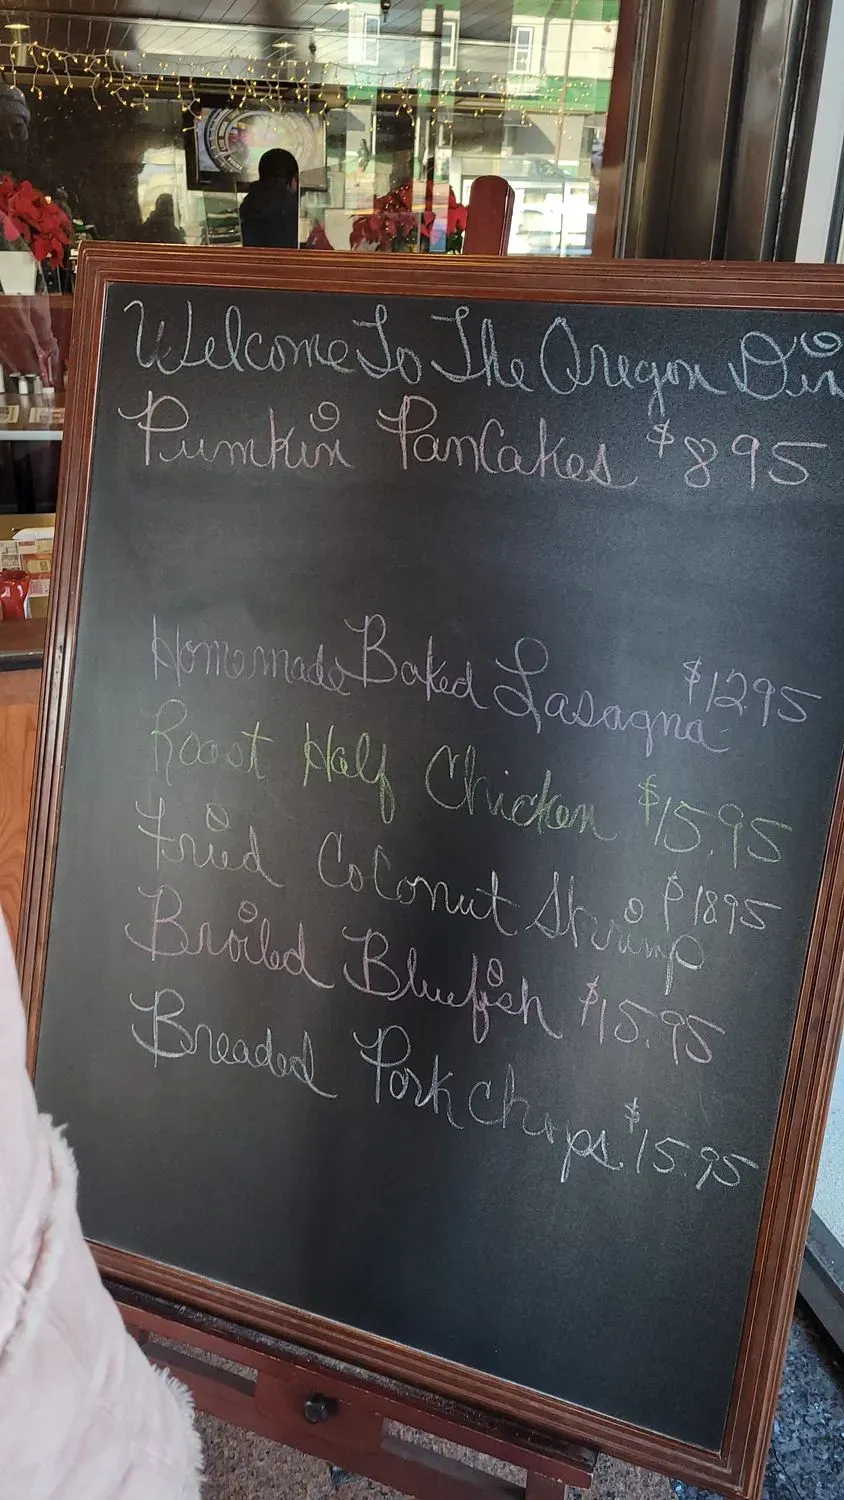 Welcome To The Oregon Din
Pumkin PanCakes $895
Homemade Baked Lasagna $1295
Roast Half Chicken $15.95
Fried CoConut Shrimp $1895
Broiled Bluefish $15.95
Breaded Pork Chops $15.95